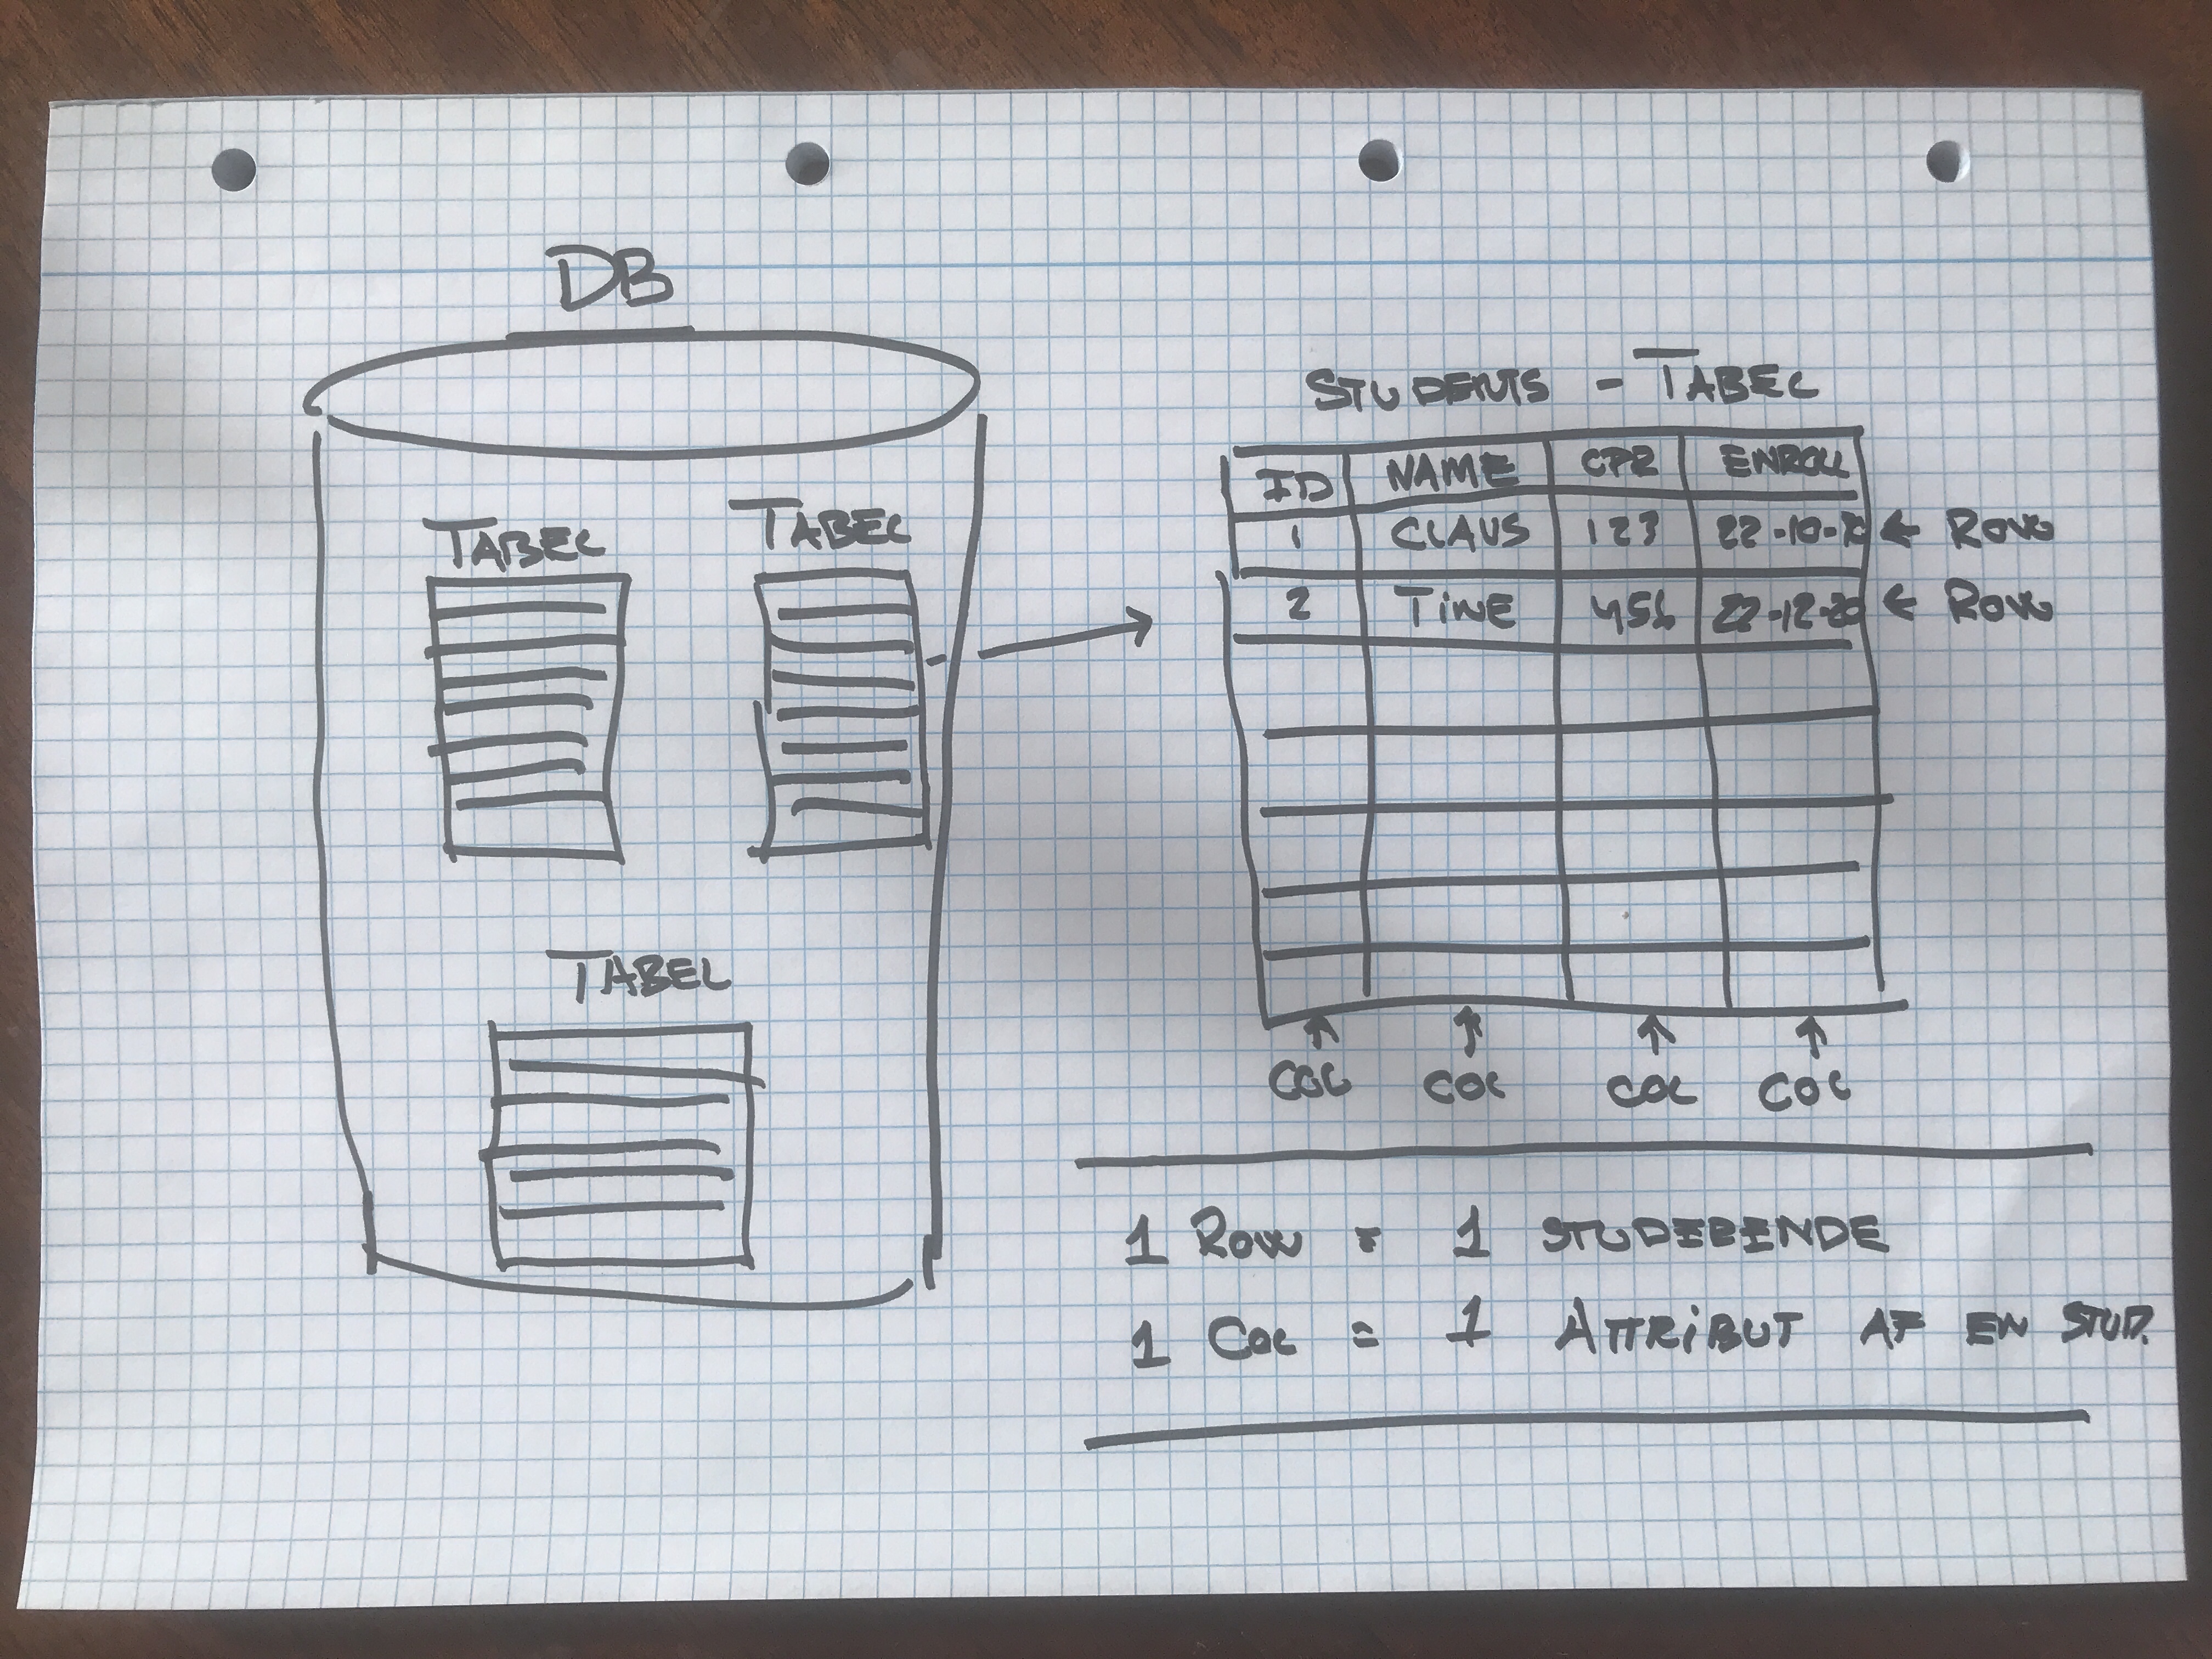 DB
TABEL TABEL
TABEL
STUDENTS - TABEL
ID NAME CPR ENROLL
1 CLAUS 123 22-10-20 ← ROW
2 TINE 456 22-12-20 ← ROW
COL COL COL COL
1 ROW = 1 STUDERENDE
1 COL = 1 ATTRIBUT AF EN STUD.